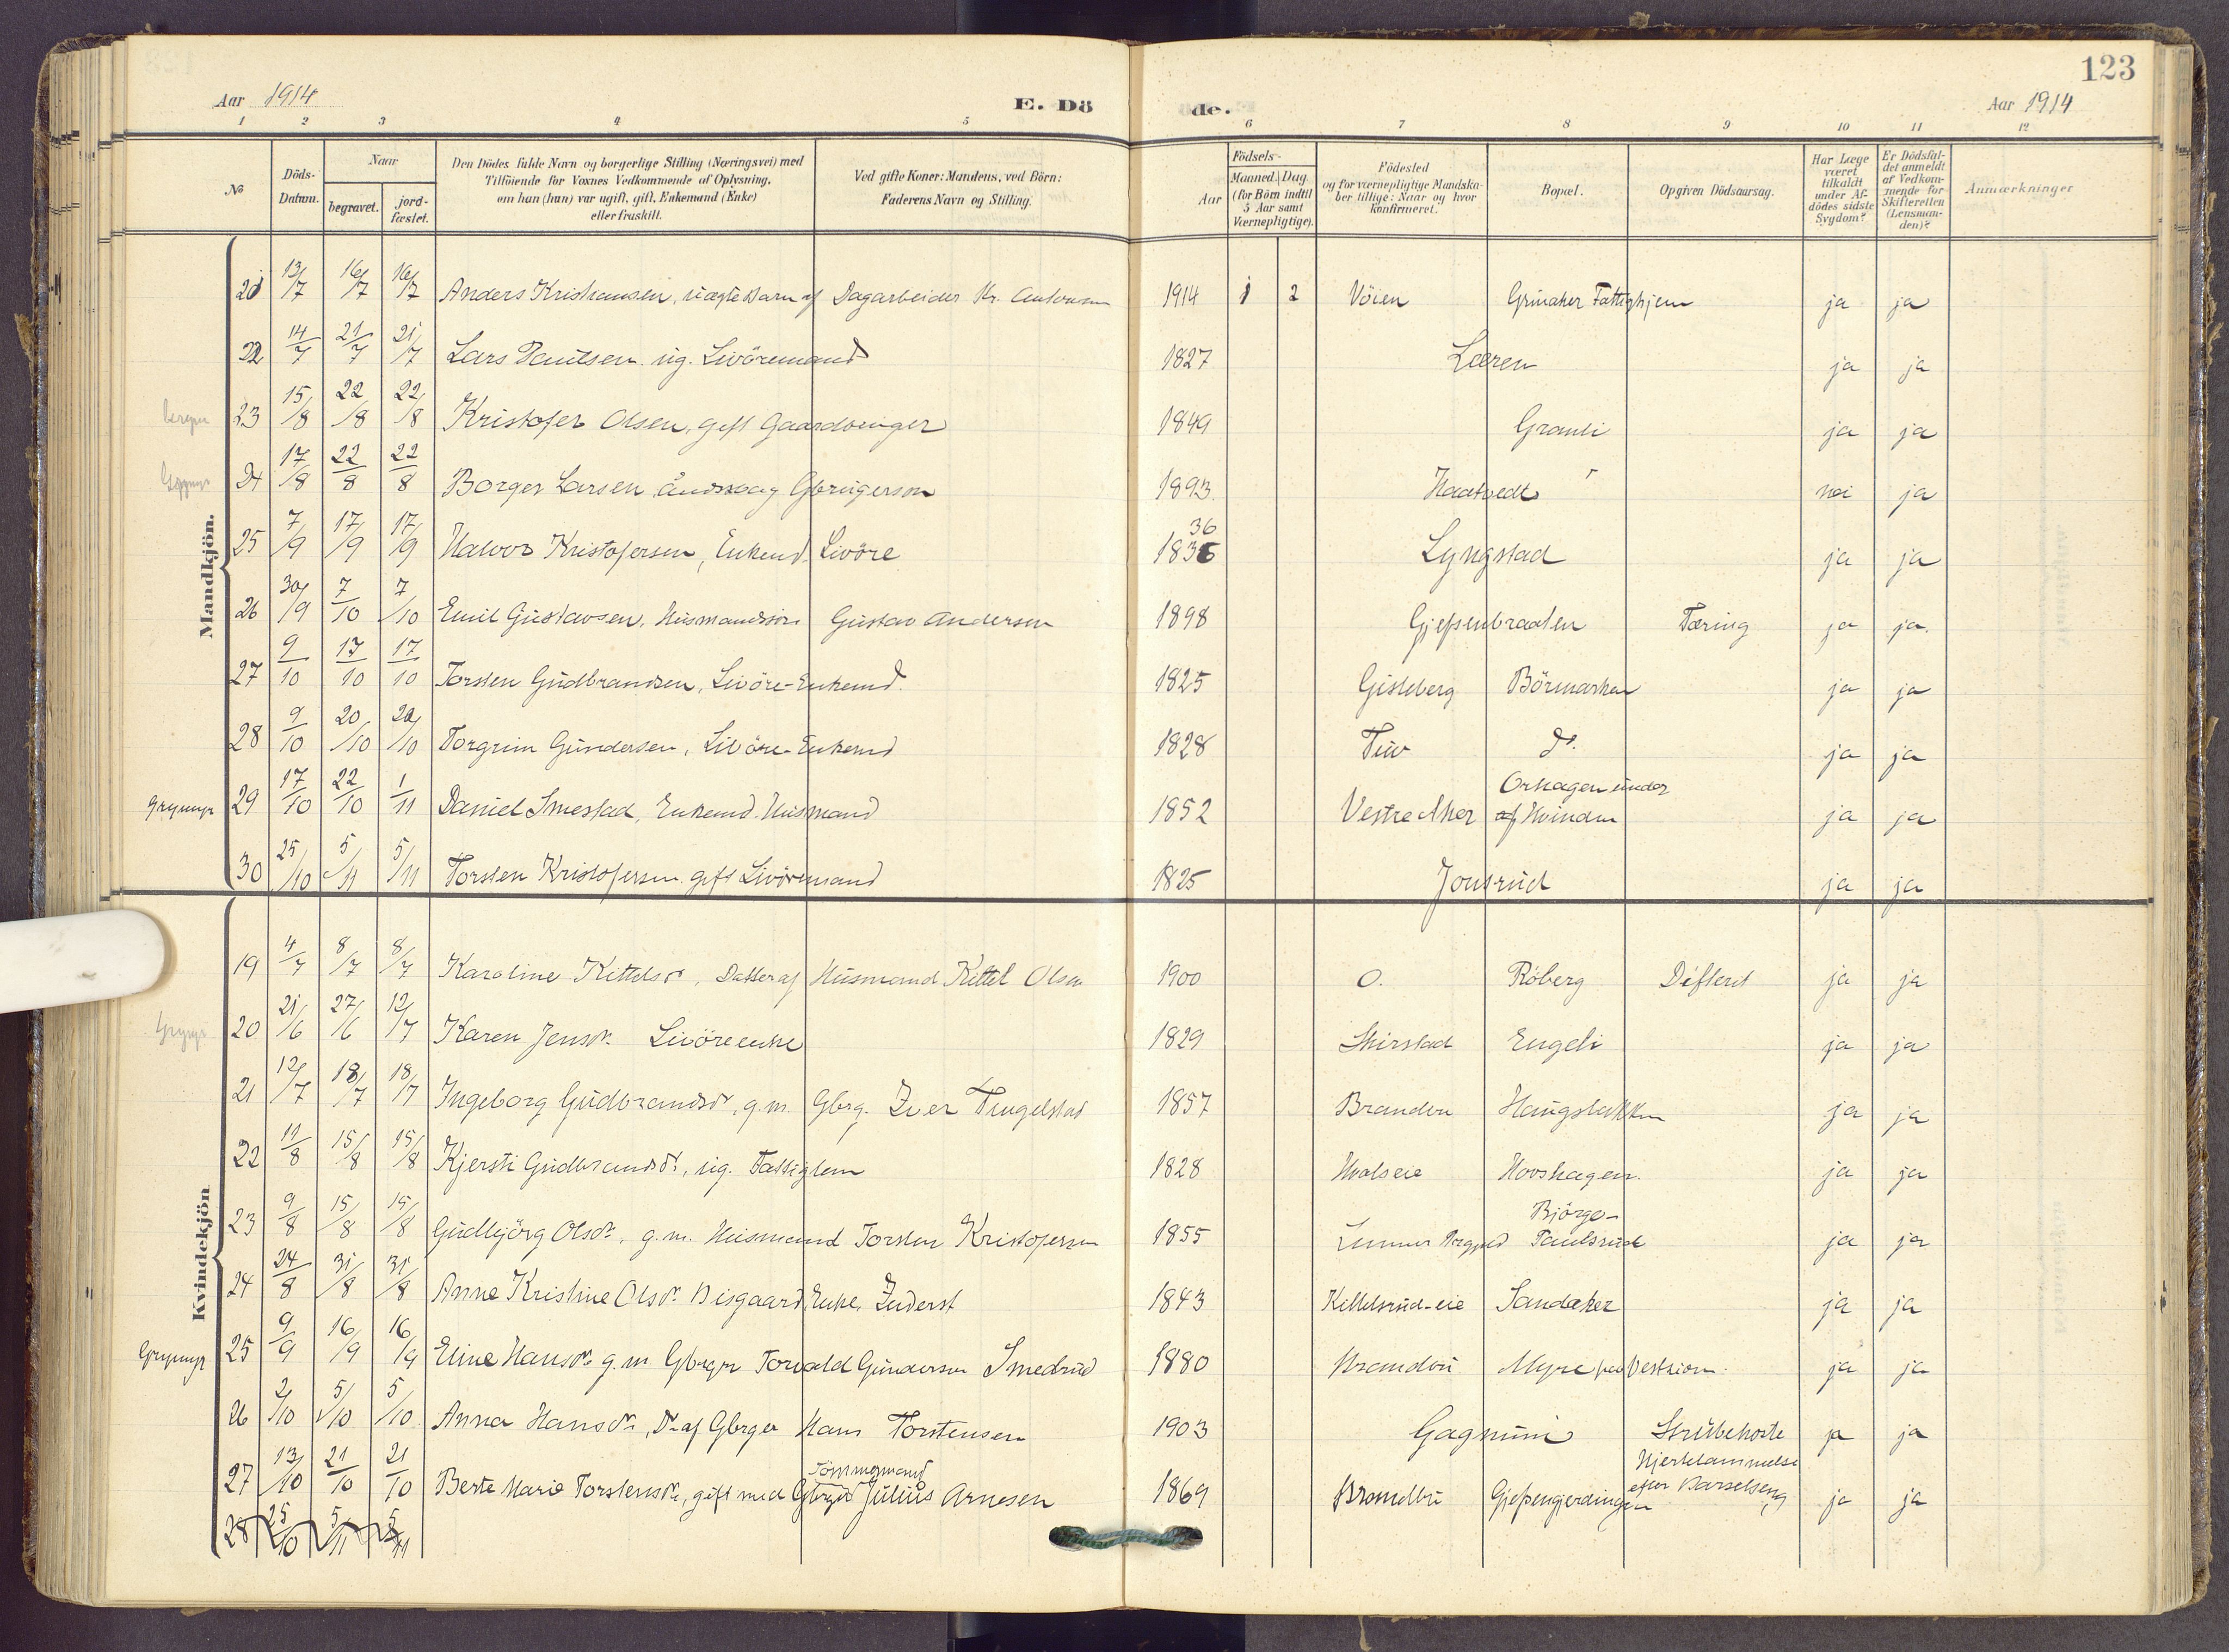 123
Aar 1914 E. Dö de. Aar 1914
1 2 3 4 5 6 7 8 9 10 11 12
No
Döds-Datum.
Naar
begravet.
jord-fæstet.
Den Dödes fulde Navn og borgerlige Stilling (Næringsvei) med
Tilföiende for Voxnes Vedkommende af Oplysning,
om han (hun) var ugift, gift, Enkemand (Enke)
eller fraskilt.
Ved gifte Koner: Mandens, ved Börn:
Faderens Navn og Stilling.
Födsels-
Aar
Maaned. Dag
(for Börn indtil
5 Aar samt
Værnepligtige).
Födested
og for værnepligtige Mandska-
ber tillige: Naar og hvor
konfirmeret.
Bopæl.
Opgiven Dödsaarsag.
Har Læge
været
tilkaldt
under Af-
dödes sidste
Sygdom?
Er Dödsfal-
det anmeldt
af Vedkom-
mende for
Skifteretten
(Lensman-
den)?
Anmærkninger
Mandkjön.
21 13/7 16/7 16/7 Anders Kristiansen, uægte Barn af Dagarbeider Kr. Antonsen 1914 1 2 Vöien Grinaker Fattighjem ja ja
22 14/7 21/7 21/7 Lars Paulsen ug. Livöremand 1827 Læren ja ja
23 15/8 22/8 22/8 Kristofer Olsen, gift Gaardbruger 1849 Granli ja ja
24 17/8 22/8 22/8 Borger Larsen Åndssvag Gbrugerson 1893 Haatvedt nei ja
25 7/9 17/9 17/9 Halvor Kristofersen, Enkemd. Livöre 1836 36 Lyngstad ja ja
26 30/9 7/10 7/10 Emil Gustavsen, Husmandssön Gustav Andersen 1898 Gjefsenbraaten Tæring ja ja.
27 9/10 17/10 17/10 Torsten Gudbrandsen, Livöre-Enkemd. 1825 Gisleberg Börmarken ja ja
28 9/10 20/10 20/10 Torgrim Gundersen, Livöre-Enkemd 1828 Tuv do. ja ja
Grymyr 29 17/10 22/10 1/11 Daniel Smestad, Enkemd. Husmand 1852 Vestre Aker Orhagen under af Hvinden ja ja
30 25/10 5/11 5/11 Torsten Kristofersen gift Livöremand 1825 Jonsrud ja ja
Kvindekjön
19 4/7 8/7 8/7 Karoline Kittelsdr, Datter af Husmand Kittel Olsen 1900 O. Röberg Difterit ja ja
20 21/6 27/6 12/7 Karen Jensdr. Livöreenke 1829 Skirstad Engeli ja ja
21 12/7 18/7 18/7 Ingeborg Gudbrandsdr, g.m. Gbrg. Iver Tingelstad 1857 Brandbu Haugsbakken ja ja
22 11/8 15/8 15/8 Kjersti Gudbrandsdr, ug. Fattiglem 1828 Hvalseie Hovshagen. ja ja
23 9/8 15/8 15/8 Gudbjörg Olsdr., g.m. Husmand Torsten Kristofersen 1855 Lunner Björge-Paulsrud ja ja
24 24/8 31/8 31/8 Anne Kristine Olsdr. Bisgaard Enke, Inderst 1843 Kittelsrud-eie Sandaker ja ja
Grymyr 25 9/9 16/9 16/9 Eline Hansdr. g.m Gbrger Torvald Gundersen Smedrud 1880 Brandbu Myre paa Vestsiden. ja ja
26 2/10 5/10 5/10 Anna Hansdr, Dr. af Gbrger Hans Torstensen 1903 Gagnum Strubehoste ja ja
27 13/10 21/10 21/10 Berte Marie Torstensdr, gift med Tömmermand Julius Arnesen 1869 Brandbu Gjefsengjerdingen Hjertelammelse efter Barselseng ja ja
28 25/10 5/11 5/11